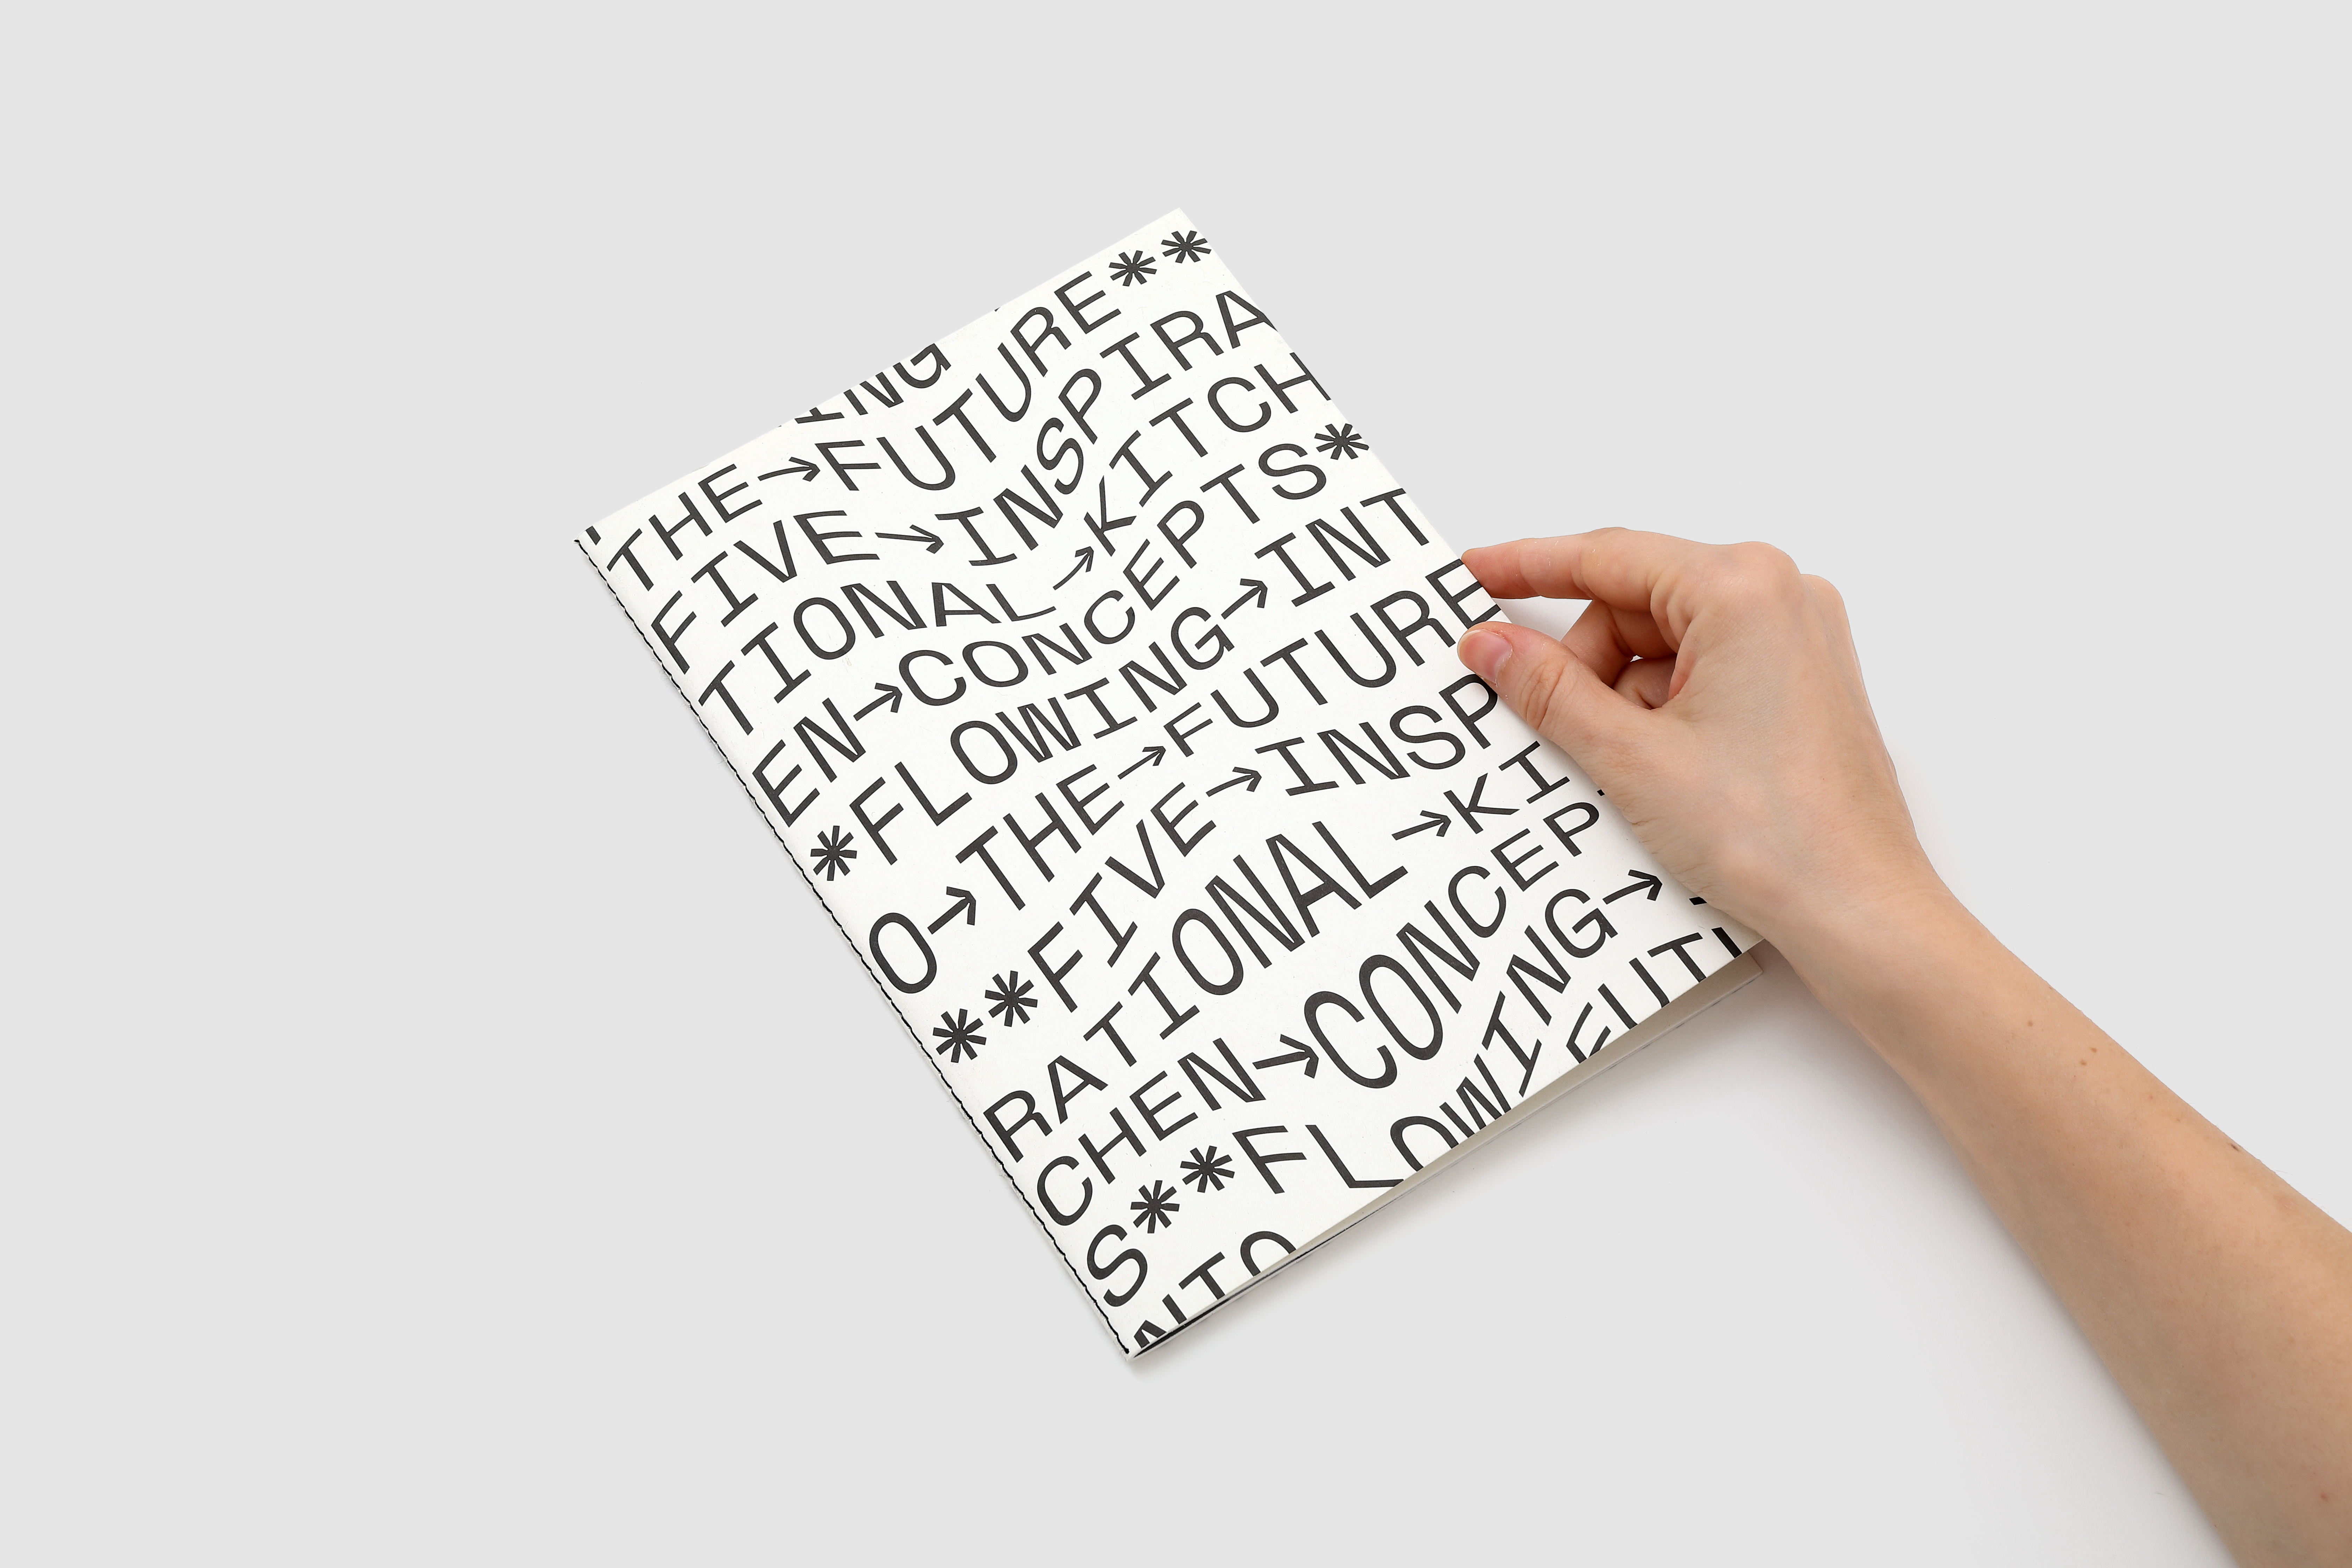 ING
THE→FUTURE**
FIVE→INSPIRA
TIONAL→KITCH
EN→CONCEPTS*
*FLOWING→INT
O→THE→FUTURE
**FIVE→INSP
RATIONAL→KI
CHEN→CONCEP
S**FLOWING→
NTO FUTU